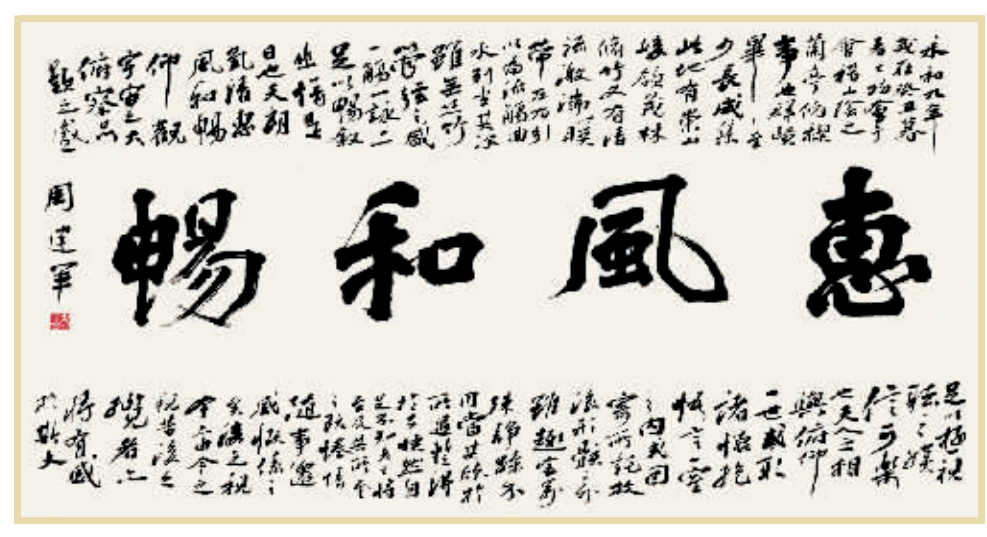 永和九年
歲在癸丑暮
春之初會于
會稽山陰之
蘭亭脩禊
事也群賢
畢至
少長咸集
此地有崇山
峻領茂林
脩竹又有清
流激湍映
帶左右引
以為流觴曲
水列坐其次
雖無絲竹
管弦之盛
一觴一詠二
足以暢敘
幽情是
日也天朗
氣清惠
風和暢
仰觀
宇宙之大
俯察品
類之盛
惠風和暢
周軍
足以極視
聽之娛
信可樂
也夫人之相
與俯仰
一世或取
諸懷抱
悟言一室
之內或因
寄所託放
浪形骸外
雖趣舍萬
殊靜躁不
同當其欣於
所遇於得
於己快然自
足不知老之將
至及其所之
既倦情
隨事遷
感慨係之
矣後之視
今亦今之
視昔後之
攬者亦
將有感
於斯文